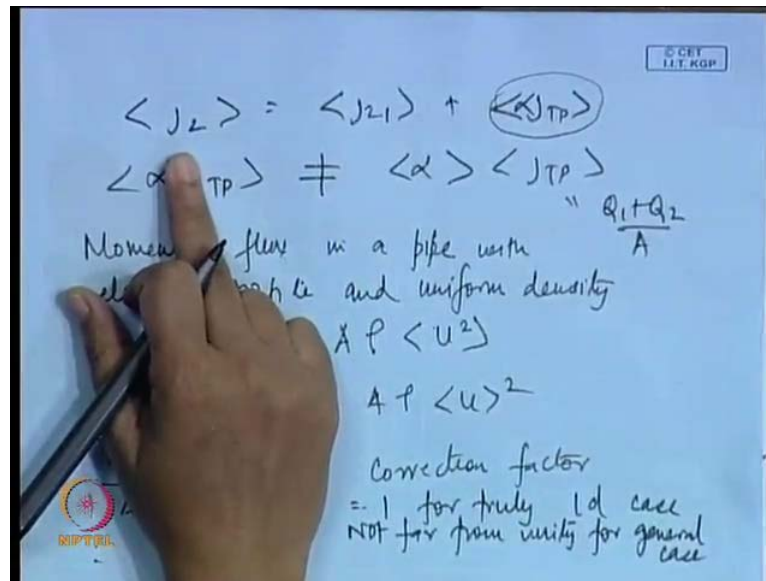 © CET
I.I.T. KGP
< J2 > = < J21 > + < αJTP >
< α TP > ≠ < α > < JTP >
" Q1+Q2 / A
flux in a pipe with
and uniform density
A ρ < U² >
A ρ < U >²
Correction factor
= 1 for truly 1d case
Not far from unity for general
case
NPTEL